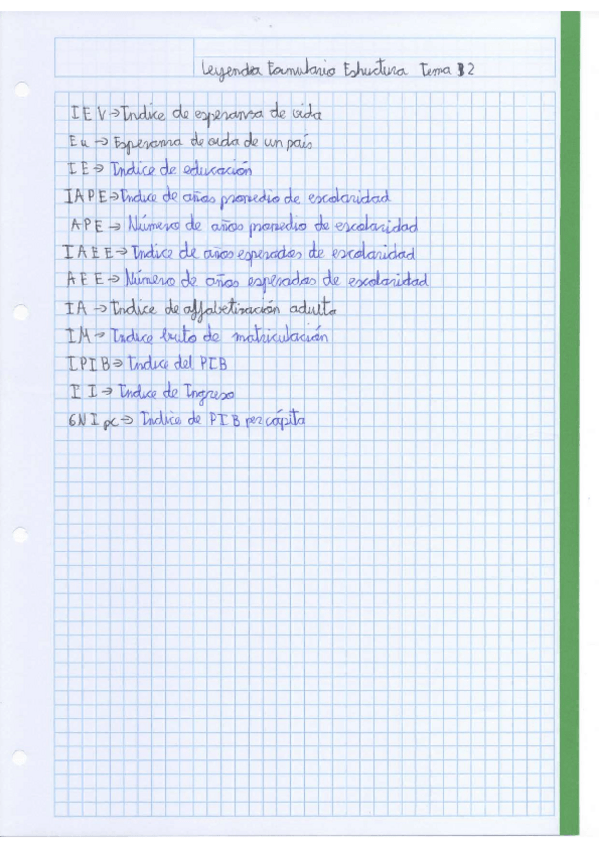 Leyenda Formulario Estructura Tema 2
IEV → Indice de esperansa de vida
Eu → Esperanza de vida de un país
IE → Indice de educación
IAPE → Indice de años promedio de escolaridad
APE → Número de años promedio de escolaridad
IAEE → Indice de años esperados de escolaridad
AEE → Número de años esperados de escolaridad
IA → Indice de alfabetización adulta
IM → Indice bruto de matriculación
IPIB → Indice del PIB
II → Indice de Ingreso
GNIpc → Indice de PIB per cápita